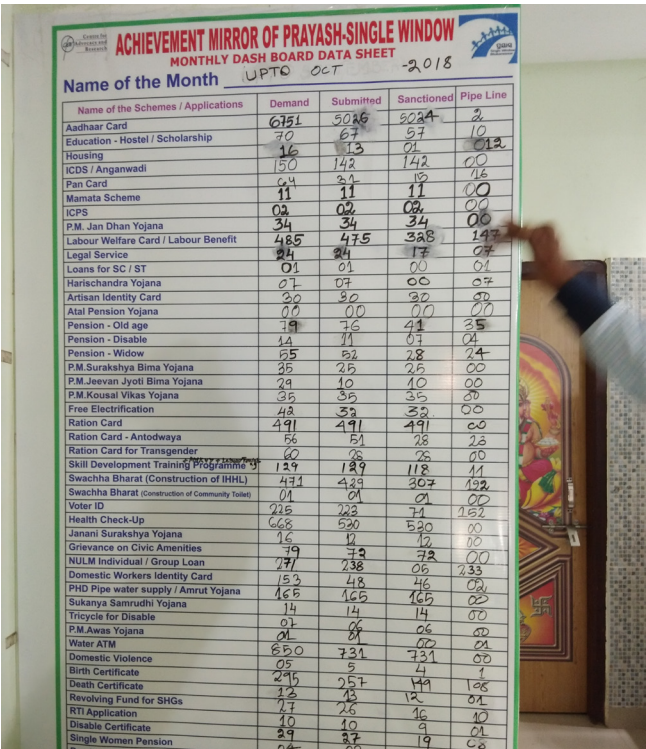 Centre for
Advocacy and
Research
ACHIEVEMENT MIRROR OF PRAYASH-SINGLE WINDOW
MONTHLY DASH BOARD DATA SHEET
Name of the Month UPTO OCT -2018
Name of the Schemes / Applications Demand Submitted Sanctioned Pipe Line
Aadhaar Card 6751 5026 5024 2
Education - Hostel / Scholarship 70 67 57 10
Housing 16 13 01 012
ICDS / Anganwadi 150 142 142 00
Pan Card 64 31 15 16
Mamata Scheme 11 11 11 00
ICPS 02 02 02 00
P.M. Jan Dhan Yojana 34 34 34 00
Labour Welfare Card / Labour Benefit 485 475 328 147
Legal Service 24 24 17 07
Loans for SC / ST 01 01 00 01
Harischandra Yojana 07 07 00 07
Artisan Identity Card 30 30 30 00
Atal Pension Yojana 00 00 00 00
Pension - Old age 79 76 41 35
Pension - Disable 14 11 07 04
Pension - Widow 55 52 28 24
P.M.Surakshya Bima Yojana 35 25 25 00
P.M.Jeevan Jyoti Bima Yojana 29 10 10 00
P.M.Kousal Vikas Yojana 35 35 35 00
Free Electrification 42 32 32 00
Ration Card 491 491 491 00
Ration Card - Antodwaya 56 51 28 23
Ration Card for Transgender 60 28 28 00
Skill Development Training Programme 129 129 118 11
Swachha Bharat (Construction of IHHL) 471 429 307 122
Swachha Bharat (Construction of Community Toilet) 01 01 01 00
Voter ID 225 223 71 152
Health Check-Up 668 530 530 00
Janani Surakshya Yojana 16 12 12 00
Grievance on Civic Amenities 79 72 72 00
NULM Individual / Group Loan 271 238 05 233
Domestic Workers Identity Card 153 48 46 02
PHD Pipe water supply / Amrut Yojana 165 165 165 00
Sukanya Samrudhi Yojana 14 14 14 00
Tricycle for Disable 07 06 06 00
P.M.Awas Yojana 01 01 00 01
Water ATM 850 731 731 00
Domestic Violence 05 5 4 1
Birth Certificate 295 257 149 108
Death Certificate 13 13 12 01
Revolving Fund for SHGs 27 26 16 10
RTI Application 10 10 9 01
Disable Certificate 29 27 19
Single Women Pension